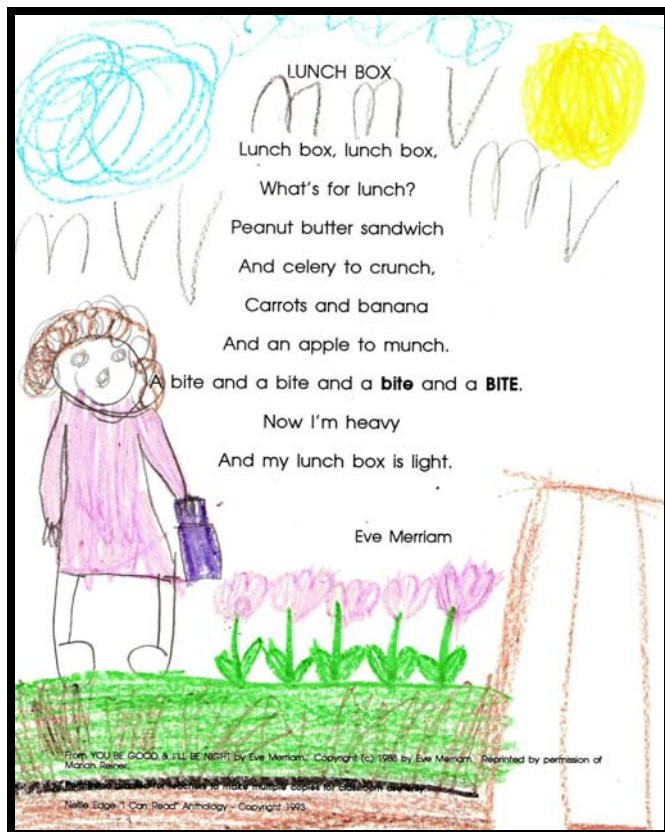 LUNCH BOX
Lunch box, lunch box,
What's for lunch?
Peanut butter sandwich
And celery to crunch,
Carrots and banana
And an apple to munch.
A bite and a bite and a bite and a BITE.
Now I'm heavy
And my lunch box is light.
Eve Merriam
From YOU BE GOOD & I'LL BE NIGHT by Eve Merriam. Copyright (c) 1988 by Eve Merriam. Reprinted by permission of
Marian Reiner.
Permission granted for teachers to make multiple copies for classroom use only.
Nellie Edge "I Can Read" Anthology - Copyright 1993